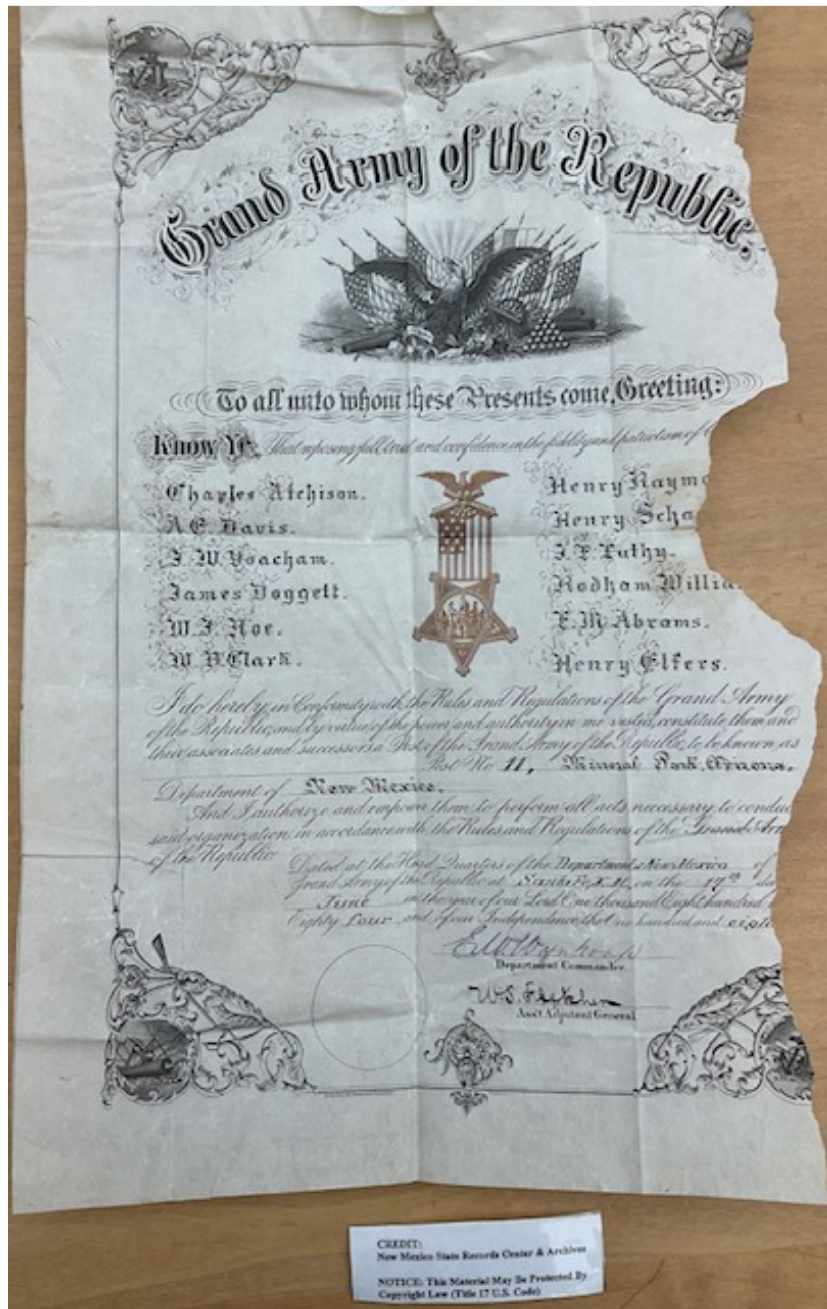 Grand Army of the Republic.
To all unto whom these Presents come, Greeting:
Know Ye, That reposing full trust and confidence in the fidelity and patriotism of
Charles Atchison.
A. E. Davis.
J. W. Yoacham.
James Doggett.
W. J. Roe.
W. H. Clark.
Henry Raymo
Henry Scha
J. F. Luthy.
Rodham Willia
F. M. Abrams.
Henry Elfers.
I do hereby, in Conformity with the Rules and Regulations of the Grand Army
of the Republic, and by virtue of the power and authority in me vested, constitute them and
their associates and successors a Post of the Grand Army of the Republic, to be known as
Post No 11, Mineral Park, Arizona,
Department of New Mexico.
And I authorize and empower them to perform all acts necessary to conduc
said organization in accordance with the Rules and Regulations of the Grand Arm
of the Republic
Dated at the Head Quarters of the Department New Mexico of
Grand Army of the Republic at Santa Fe, N. M, on the 17th da
June in the year of our Lord One thousand Eight hundred
Eighty Four and of our Independence the One hundred and eight
E. W. Wynkoop
Department Commander.
W. S. Fletcher
Ass't Adjutant General
CREDIT:
New Mexico State Records Center & Archives
NOTICE: This Material May Be Protected By
Copyright Law (Title 17 U.S. Code)